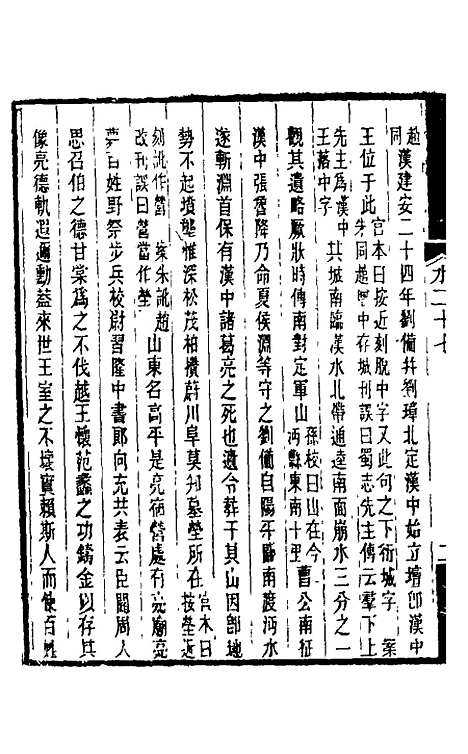 同趙漢建安二十四年劉備幷劉璋北定漢中始立壇卽漢中
王位于此官本曰按近刻脫中字又此句之下衍城字 案朱同趙中存城刊誤曰蜀志先主傳云羣下上
先主爲漢中王落中字其城南臨漢水北帶通逵南面崩水三分之一
觀其遺略厥狀時傳南對定軍山孫校曰山在今沔縣東南十里曹公南征
漢中張魯降乃命夏侯淵等守之劉備自陽平關南渡沔水
遂斬淵首保有漢中諸葛亮之死也遺令葬于其山因卽地
勢不起墳壟惟深松茂柏攢蔚川阜莫知墓塋所在官本曰按塋近
刻訛作營 案朱訛趙改刊誤曰營當作塋山東名高平是亮宿營處有亮廟亮
薨百姓野祭步兵校尉習隆中書郞向充共表云臣聞周人
思召伯之德甘棠爲之不伐越王懷范蠡之功鑄金以存其
像亮德軌遐邇勳蓋來世王室之不壞實賴斯人而使百姓
水二十七